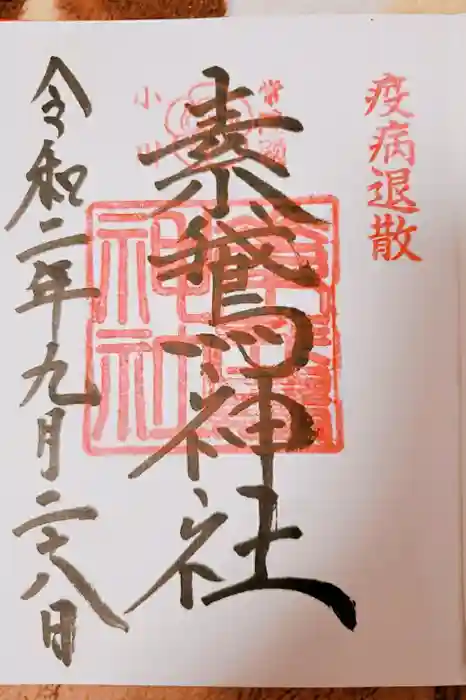 疫病退散
常陸国
小川
素鵞神社
素鵞神社
令和二年九月二十八日